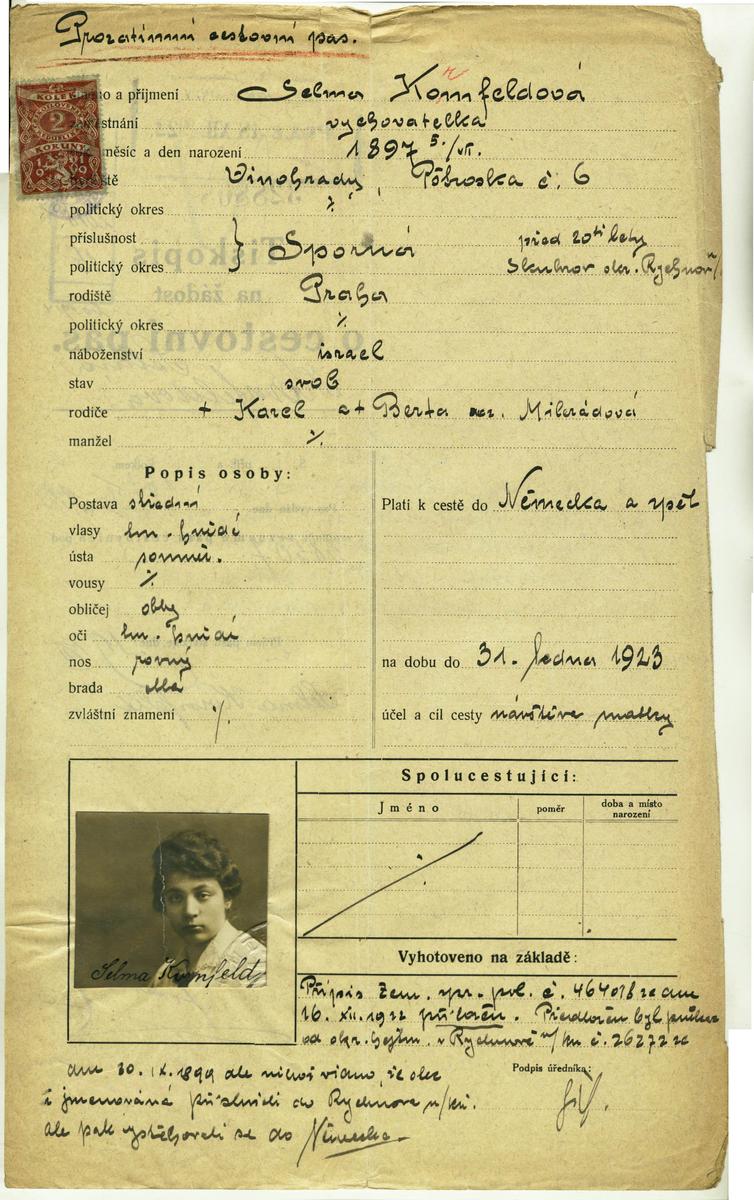 Prozatimní cestovní pas.
KOLEK
2
KORUNY
1919
jméno a příjmení Selma Kornfeldová
zaměstnání vychovatelka
měsíc a den narození 1897 5./VII.
bydliště Vinohrady, č. 6
politický okres ·/·
příslušnost } Sporná před 20ti lety
politický okres Skuhrov okr. Rychnov n/
rodiště Praha
politický okres ·/·
náboženství israel
stav svob
rodiče + Karel a + Berta roz. Milrádová
manžel ·/·
Popis osoby:
Postava střední
vlasy tm. hnědé
ústa souměr.
vousy ·/·
obličej oblý
oči tm. hnědé
nos rovný
brada oblá
zvláštní znamení ·/·
Platí k cestě do Německa a zpět
na dobu do 31. ledna 1923
účel a cíl cesty návštěva matky
Selma Kornfeld
Spolucestující:
Jméno poměr doba a místo narození
Vyhotoveno na základě:
Přípis zem. spr. pol. č. 464018 ze dne
16. XII. 1922 přiložen. Předložen byl průkaz
od okr. hejtm. v Rychnově n/Kn. č. 26272 ze
Podpis úředníka:
dne 30. IX. 1899 ale nichž vidno, že otec
i jmenovaná přísluší do Rychnova n/Kn.
ale pak vystěhovali se do Německa.